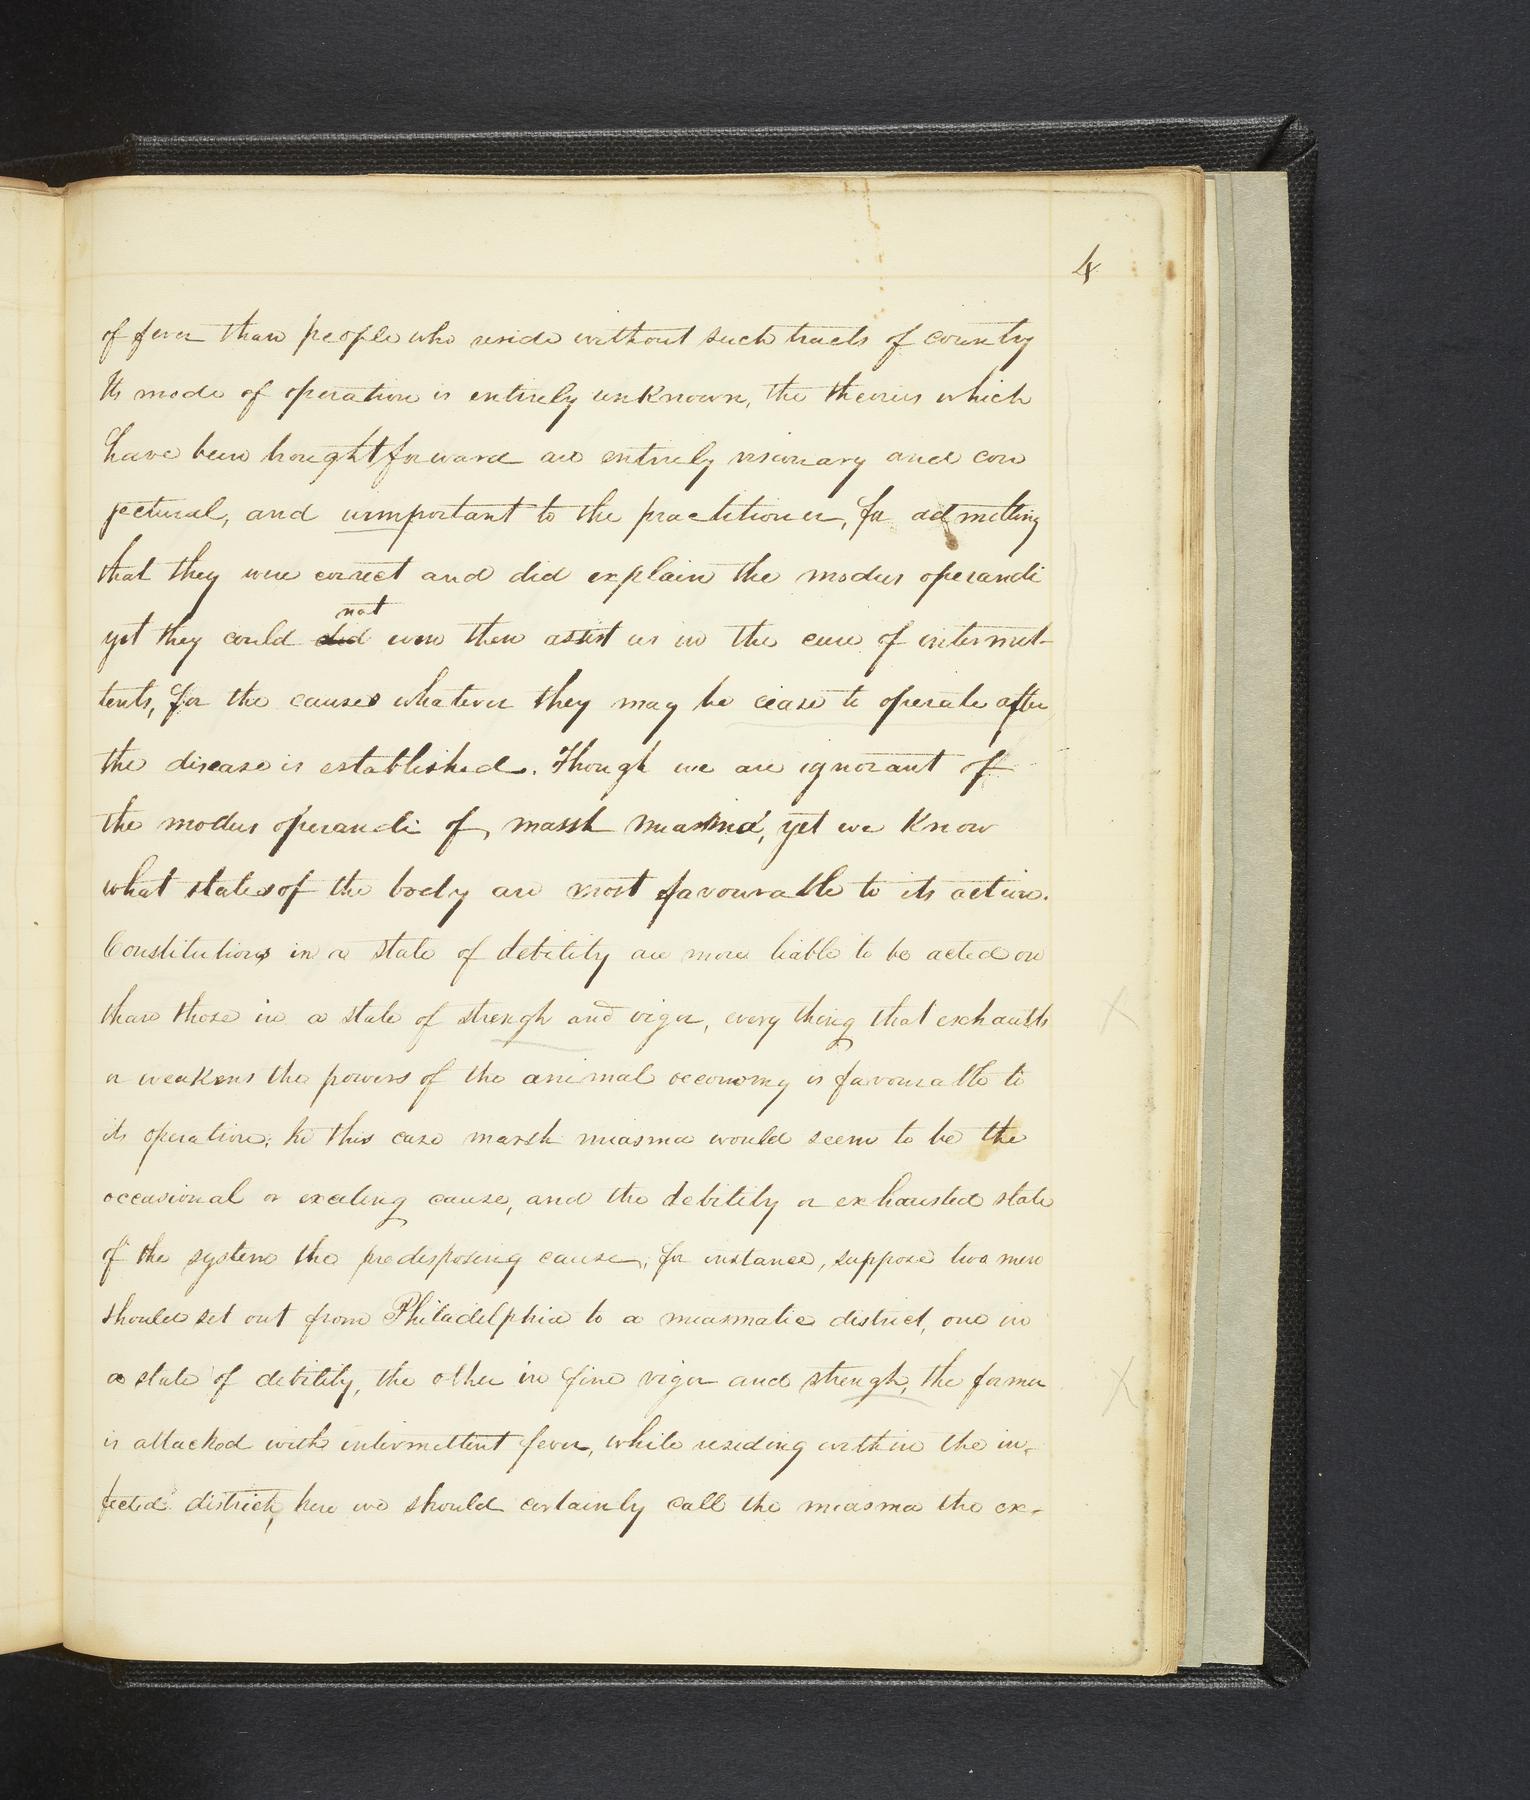 4
of fever than people who reside without such tracts of country
Its mode of operation is entirely unknown, the theories which
have been brought forward are entirely visionary and con
jectural, and unimportant to the practitioner, for admitting
that they were correct and did explain the modus operandi
not
yet they could did even then assist us in the cure of intermit-
tents, for the causes whatever they may be cease to operate after
the disease is established. Though we are ignorant of
the modus operandi of, marsh miasma, yet we know
what states of the body are most favourable to its action.
Constitutions in a state of debility are more liable to be acted on
than those in a state of strengh and vigor, every thing that exhausts
or weakens the powers of the animal oeconomy is favourable to
its operation. In this case marsh miasma would seem to be the
occasional or exciting cause, and the debility or exhausted state
of the system the predisposing cause, for instance, suppose two men
should set out from Philadelphia to a miasmatic district, one in
a state of debility, the other in fine vigor and strengh, the former
is attacked with intermittent fever, while residing within the in-
fected district, here we should certainly call the miasma the ex-